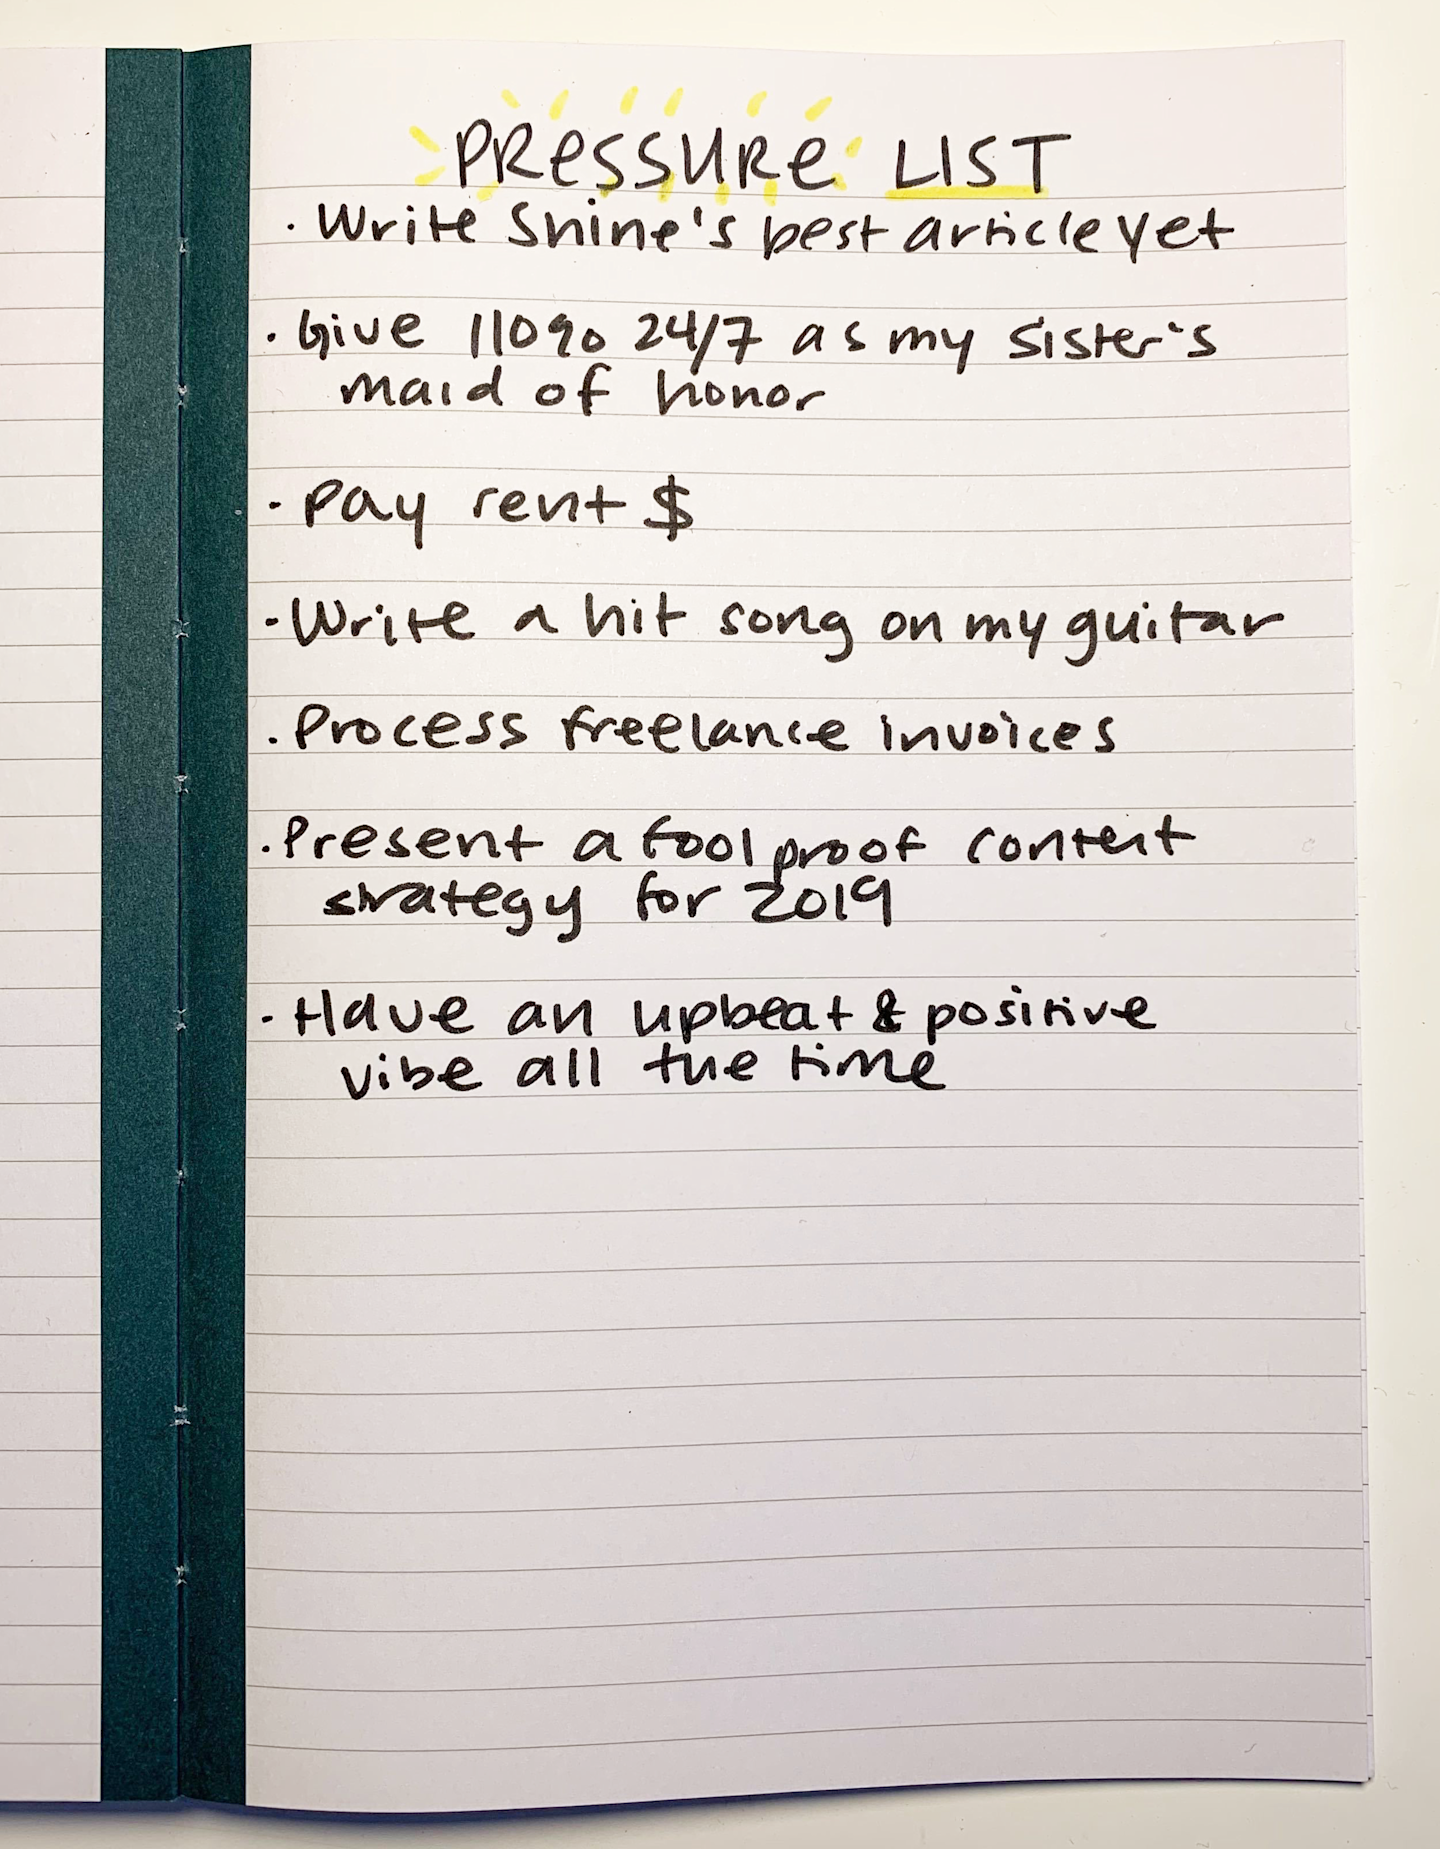 PRESSURE LIST
· Write Shine's best article yet
· Give 110% 24/7 as my sister's
maid of honor
· Pay rent $
· Write a hit song on my guitar
· Process freelance invoices
· Present a foolproof content
strategy for 2019
· Have an upbeat & positive
vibe all the time